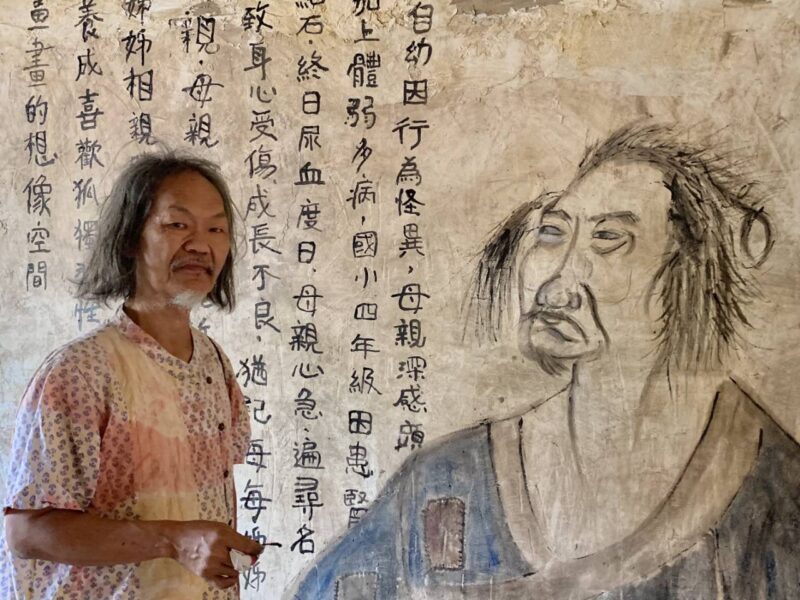 自幼因行為怪異，母親深感頭
加上體弱多病，國小四年級因患腎
石，終日尿血度日，母親心急，遍尋名
致身心受傷，成長不良，猶記每每姊
親，母親
姊相親
養成喜歡狐獨性
畫畫的想像空間